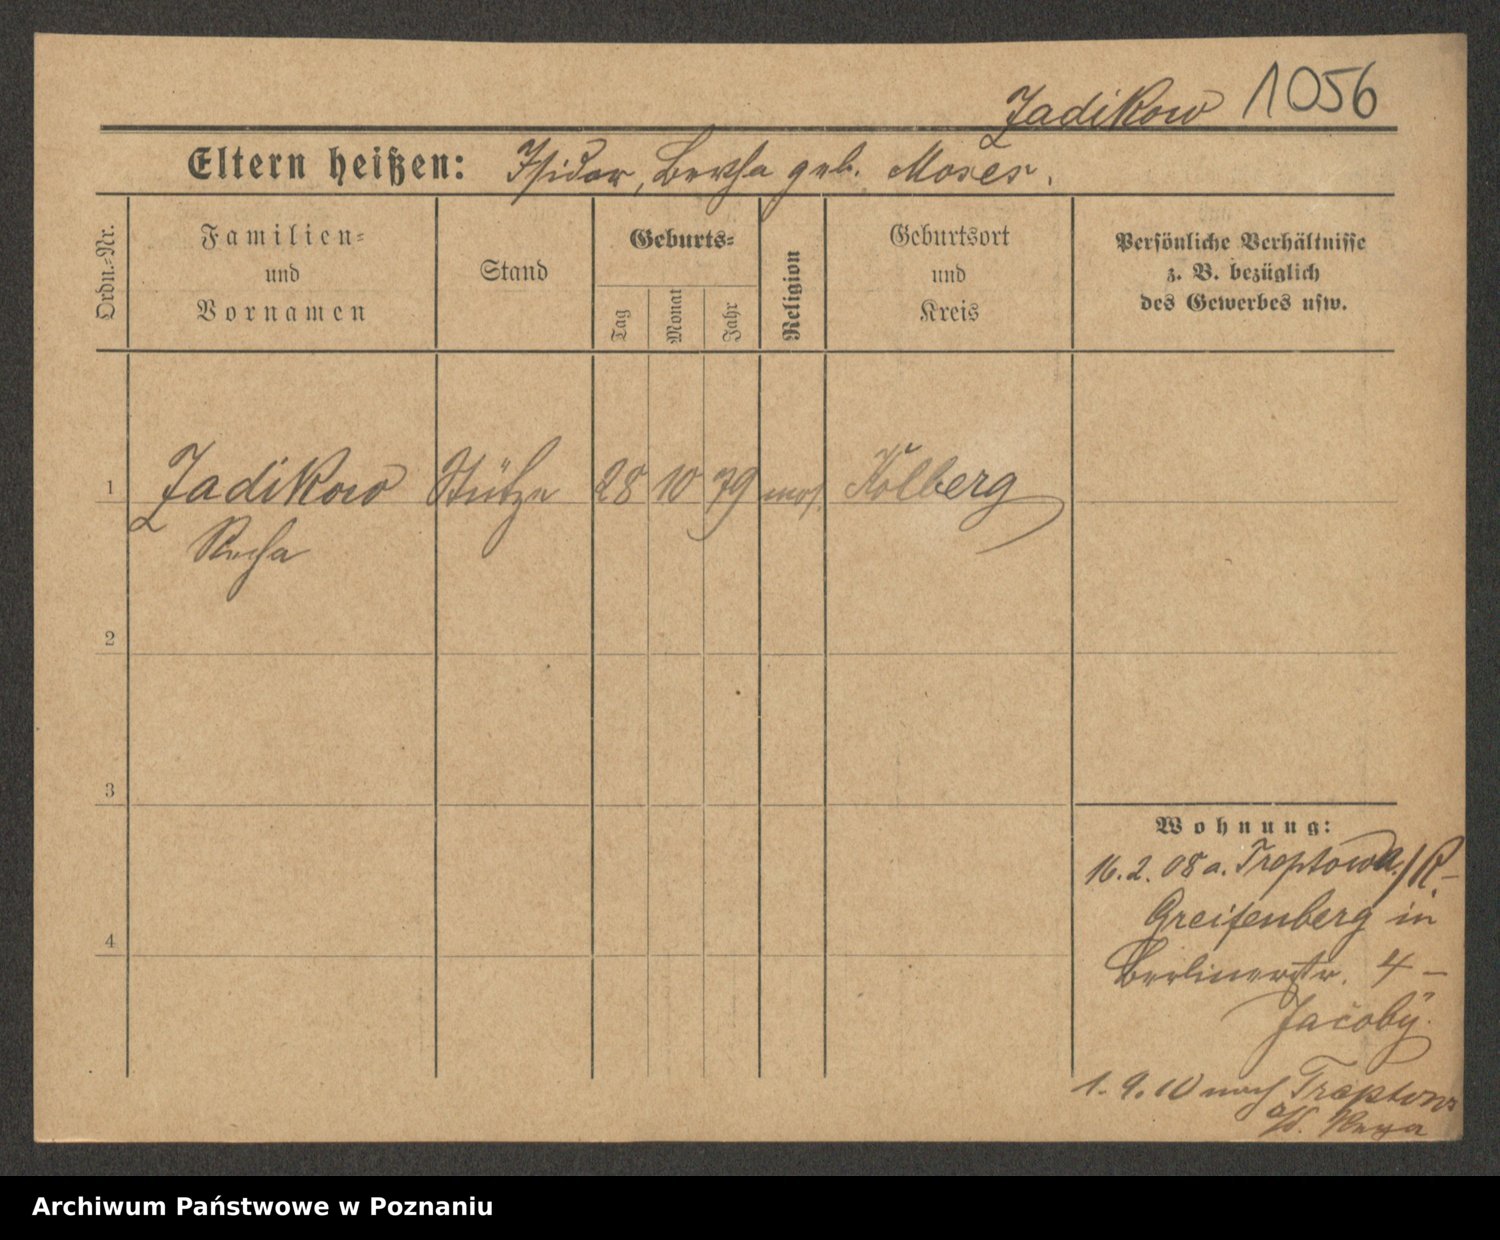 Zadikow 1056
Eltern heißen: Isidor, Bertha geb. Moses.
Ordn.-Nr.
Familien-
und
Vornamen
Stand
Geburts-
Tag
Monat
Jahr
Religion
Geburtsort
und
Kreis
Persönliche Verhältnisse
z. B. bezüglich
des Gewerbes usw.
1 Zadikow Stütze 28 10 79 mos. Kolberg
Recha
2
3
4
Wohnung:
16.2.08 a. Treptow a/R.-
Greifenberg in
Berlinerstr. 4 –
Jacoby.
1.9.10 nach Treptow
a/d. Rega
Archiwum Państwowe w Poznaniu